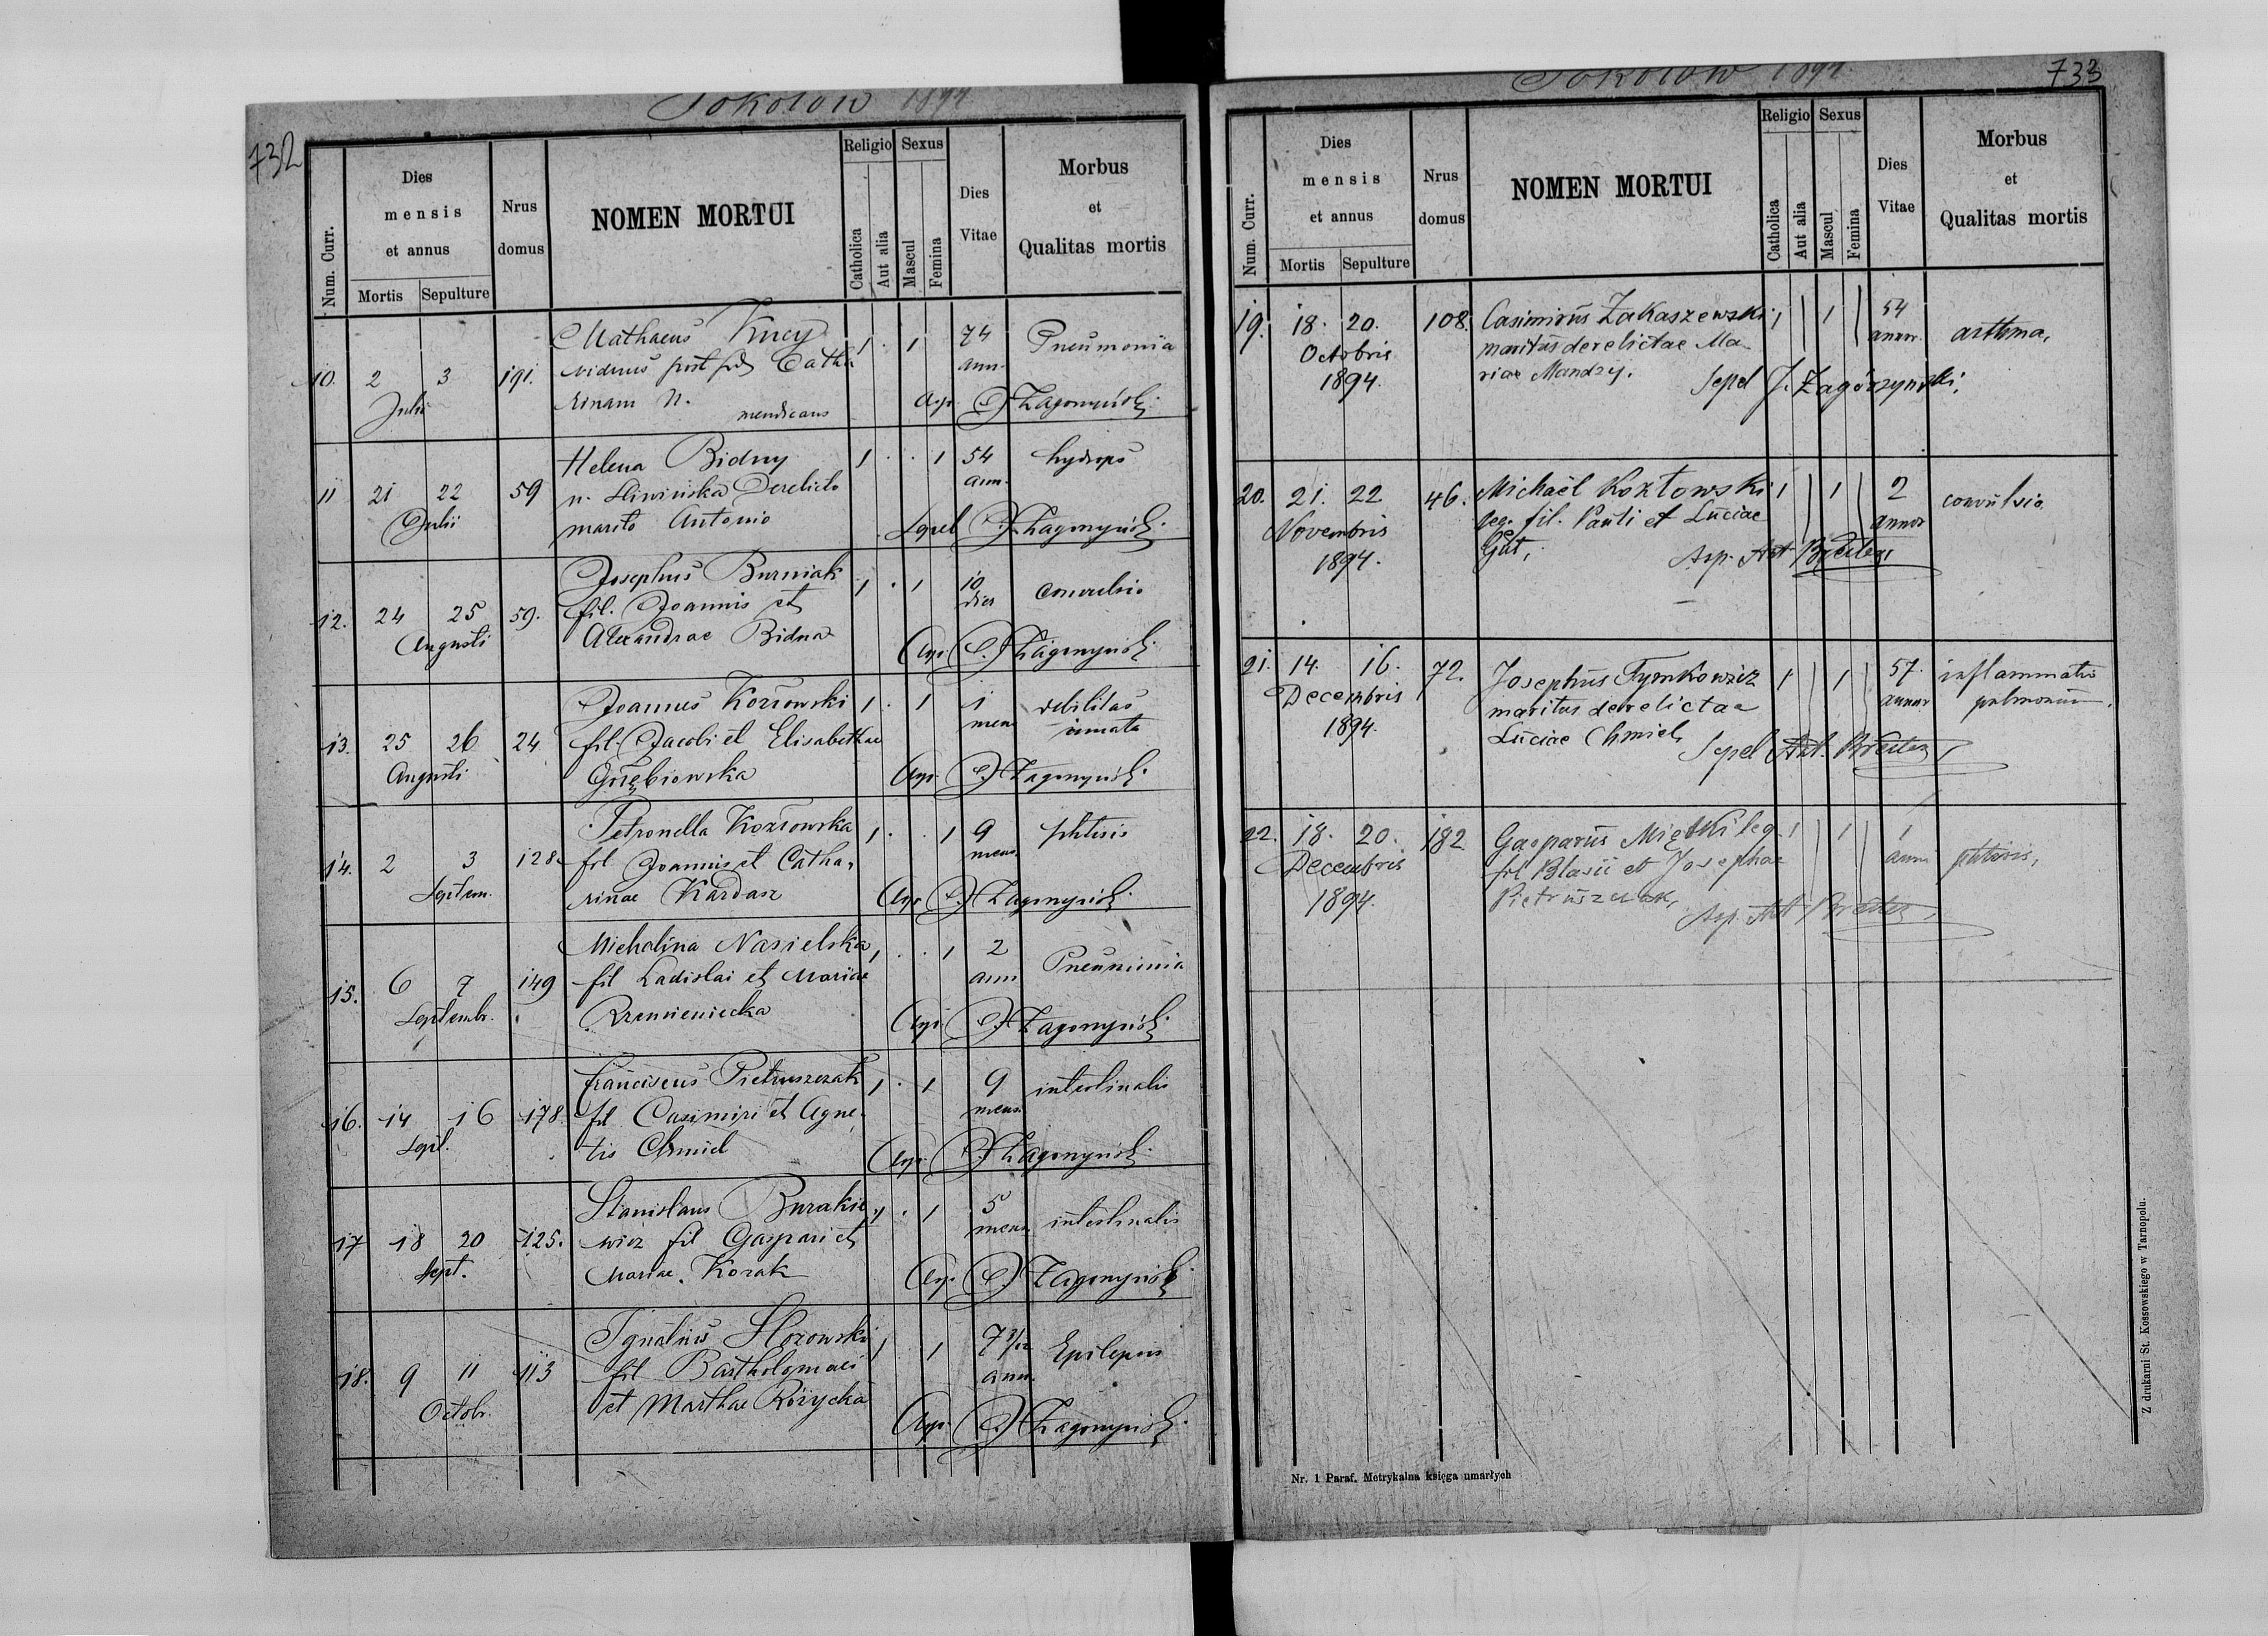 732
Sokołow 1894
Num. Curr.
Dies mensis et annus
Mortis Sepulture
Nrus domus
NOMEN MORTUI
Religio
Catholica
Aut alia
Sexus
Mascul
Femina
Dies Vitae
Morbus et Qualitas mortis
10. 2 3 Julii 191.
Mathaeus Kucy 1 . 1 74 ann. Pneumonia
viduus post Catha
rinam N. mendicans
11 21 22 Julii 59
Helena Bidny 1 . . 1 54 ann. hydrops
n. Sliwińska Derelicto
marito Antonio Sepel
12. 24 25 Augusti 59.
Josephus Burniak 1 . 1 10 dies convulsio
fil. Joannis et
Alexandrae Bidna
13. 25 26 Augusti 24
Joannes Kozłowski 1 . 1 1 mens debilitas innata
fil. Jacobi et Elisabethae
Gołębiowska
14. 2 3 Septem. 128.
Petronella Kozłowska 1 . . 1 9 mens phtisis
fil Joannis et Catha-
rinae Kardasz
15. 6 7 Septembr. 149
Michalina Nasielska 1 . . 1 2 ann Pneumonia
fil Ladislai et Mariae
Krzemieniecka
16. 14 16 Sept. 178.
Franciscus Pietruszczak 1 . 1 9 mens. intestinalis
fil Casimiri et Agne-
tis Chmiel
17 18 20 Sept. 125.
Stanislaus Burakie 1 . 1 5 mens intestinalis
wicz fil Gaspari et
Mariae Kozak
18. 9 11 Octobr. 113
Ignatius 1 1 7 ann. Epilepsis
fil Bartholomaei
et Marthae Różycka
Sokołow 1894.
733
Num. Curr.
Dies mensis et annus
Mortis Sepulture
Nrus domus
NOMEN MORTUI
Religio
Catholica
Aut alia
Sexus
Mascul
Femina
Dies Vitae
Morbus et Qualitas mortis
19. 18. 20. Octobris 1894. 108.
Casimirus Zakaszewski 1 1 54 annor. asthma,
maritus derelictae Ma-
riae Mandzy. Sepel J. Zagórzyński.
20. 21. 22 Novembris 1894. 46.
Michaël Kozłowski 1 1 2 annor convulsio
leg. fil. Pauli et Luciae
Gut, Asp. Ant Breiter
21. 14. 16. Decembris 1894. 72.
Josephus Tymkowicz 1 1 57. annor inflammatio pulmonum.
maritus derelictae
Luciae Chmiel, Sepel Ant. Breiter
22. 18. 20. Decembris 1894. 182
Gasparus Miętki leg. 1 1 1 anni phtisis,
fil Blasii et Josephae
Pietruszczak, Asp. Ant Breiter
Nr. 1 Paraf. Metrykalna księga umarłych
Z drukarni St. Kossowskiego w Tarnopolu.